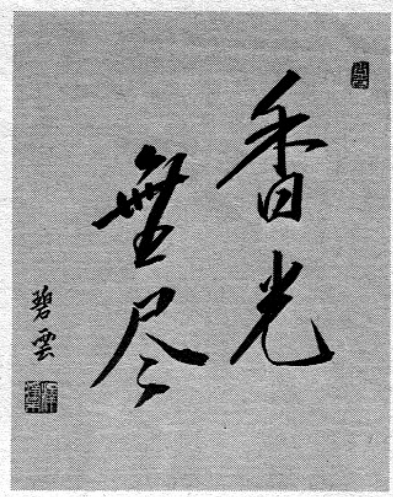 香光
無尽
碧雲